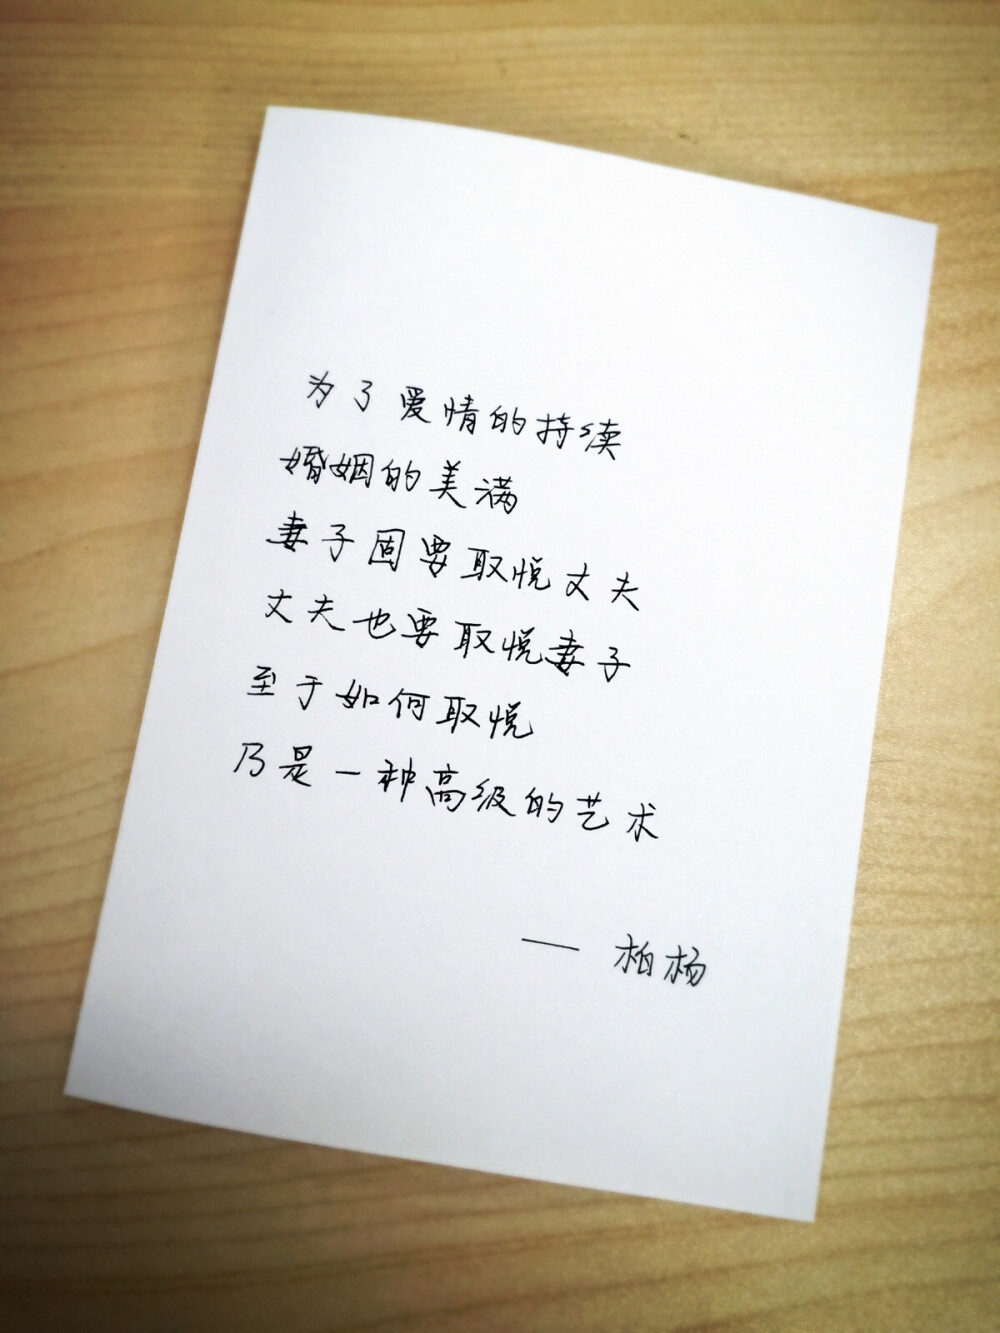 为了爱情的持续
婚姻的美满
妻子固要取悦丈夫
丈夫也要取悦妻子
至于如何取悦
乃是一种高级的艺术
—— 柏杨